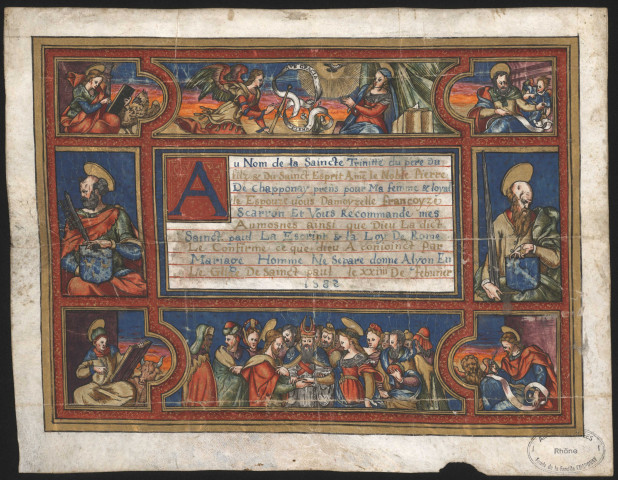 Au Nom de la Saincte Trinite du pere Du
filz & Du Sainct Esprit Ame Je Noble Pierre
De Chapponay prens pour Ma femme & loyal
le Espouze vous Damoyzelle Francoyze
Scarron Et Vous Recommande mes
Aumosnes ainsi que Dieu La dict
Sainct paul La Escript & la Loy De Rome
Le Confirme et que dieu A conioinct par
Mariage Homme Ne Separe donne A lyon En
De Sainct paul le XXIIII De Febvrier
1582
Rhône